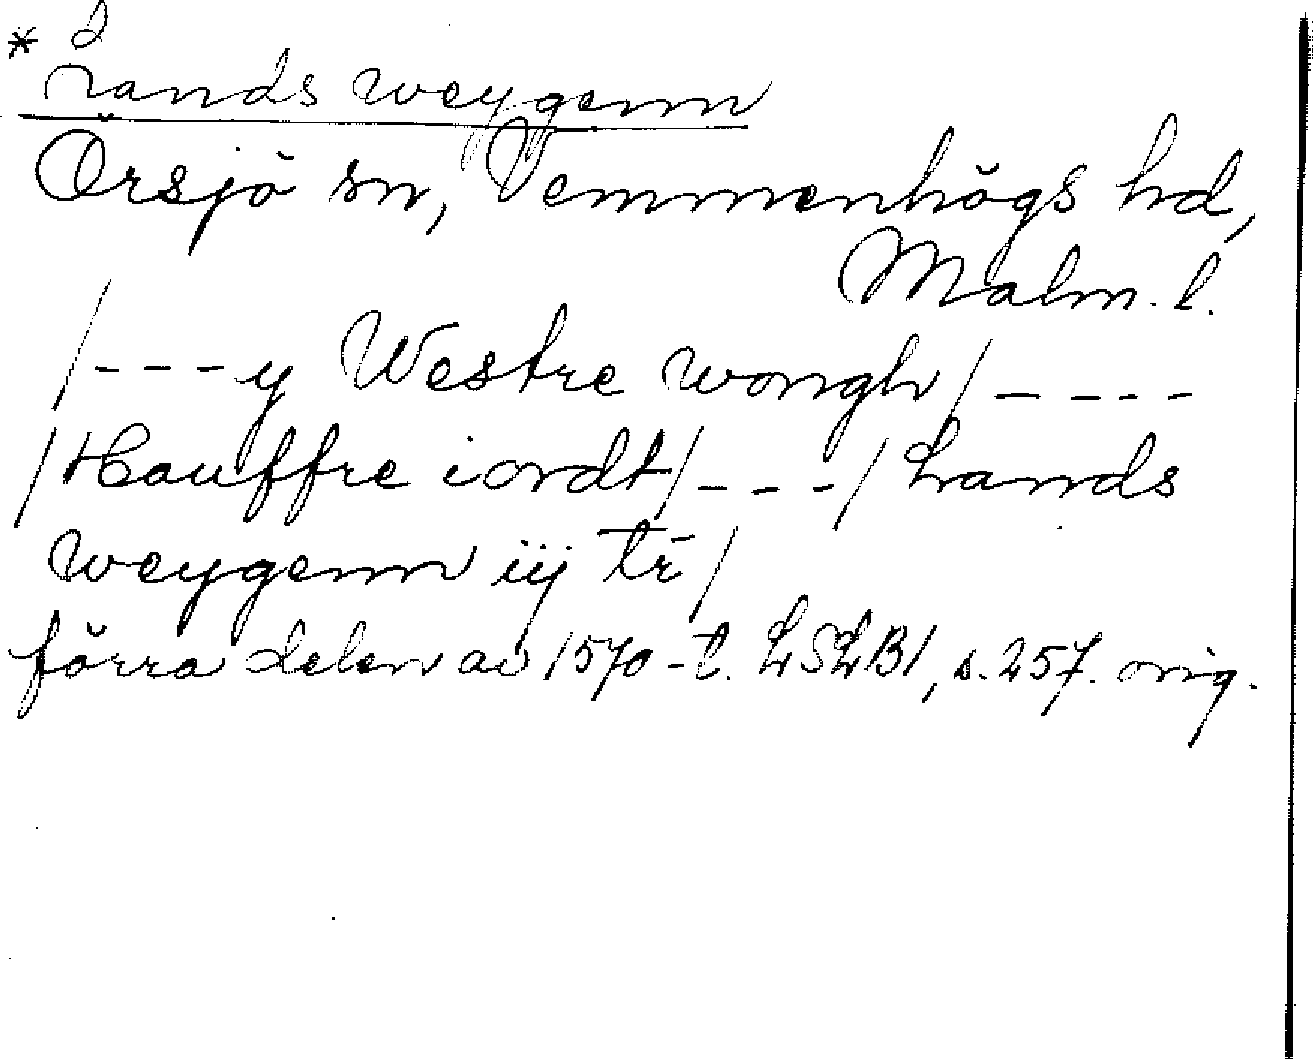 * Lands weygenn
Örsjö sn, Vemmenhögs hd,
Malm. l.
/---y Westre wongh/----
/Hauffre iordt/---/Lands
weygenn iij tr̄/
förra delen av 1570-t. LSLB1, s. 257. orig.